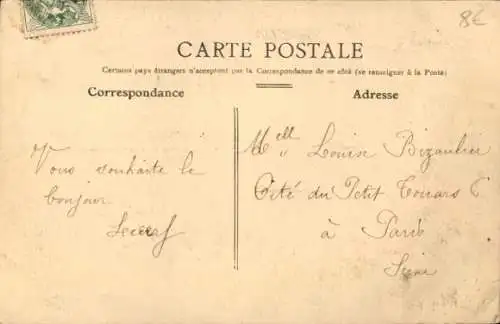 8€
CARTE POSTALE
Certains pays étrangers n'acceptent pas la Correspondance de ce côté (se renseigner à la Poste)
Correspondance
Adresse
Vous souhaite le
bonjour
Mell Louise
Cité du Petit
à Paris
Seine